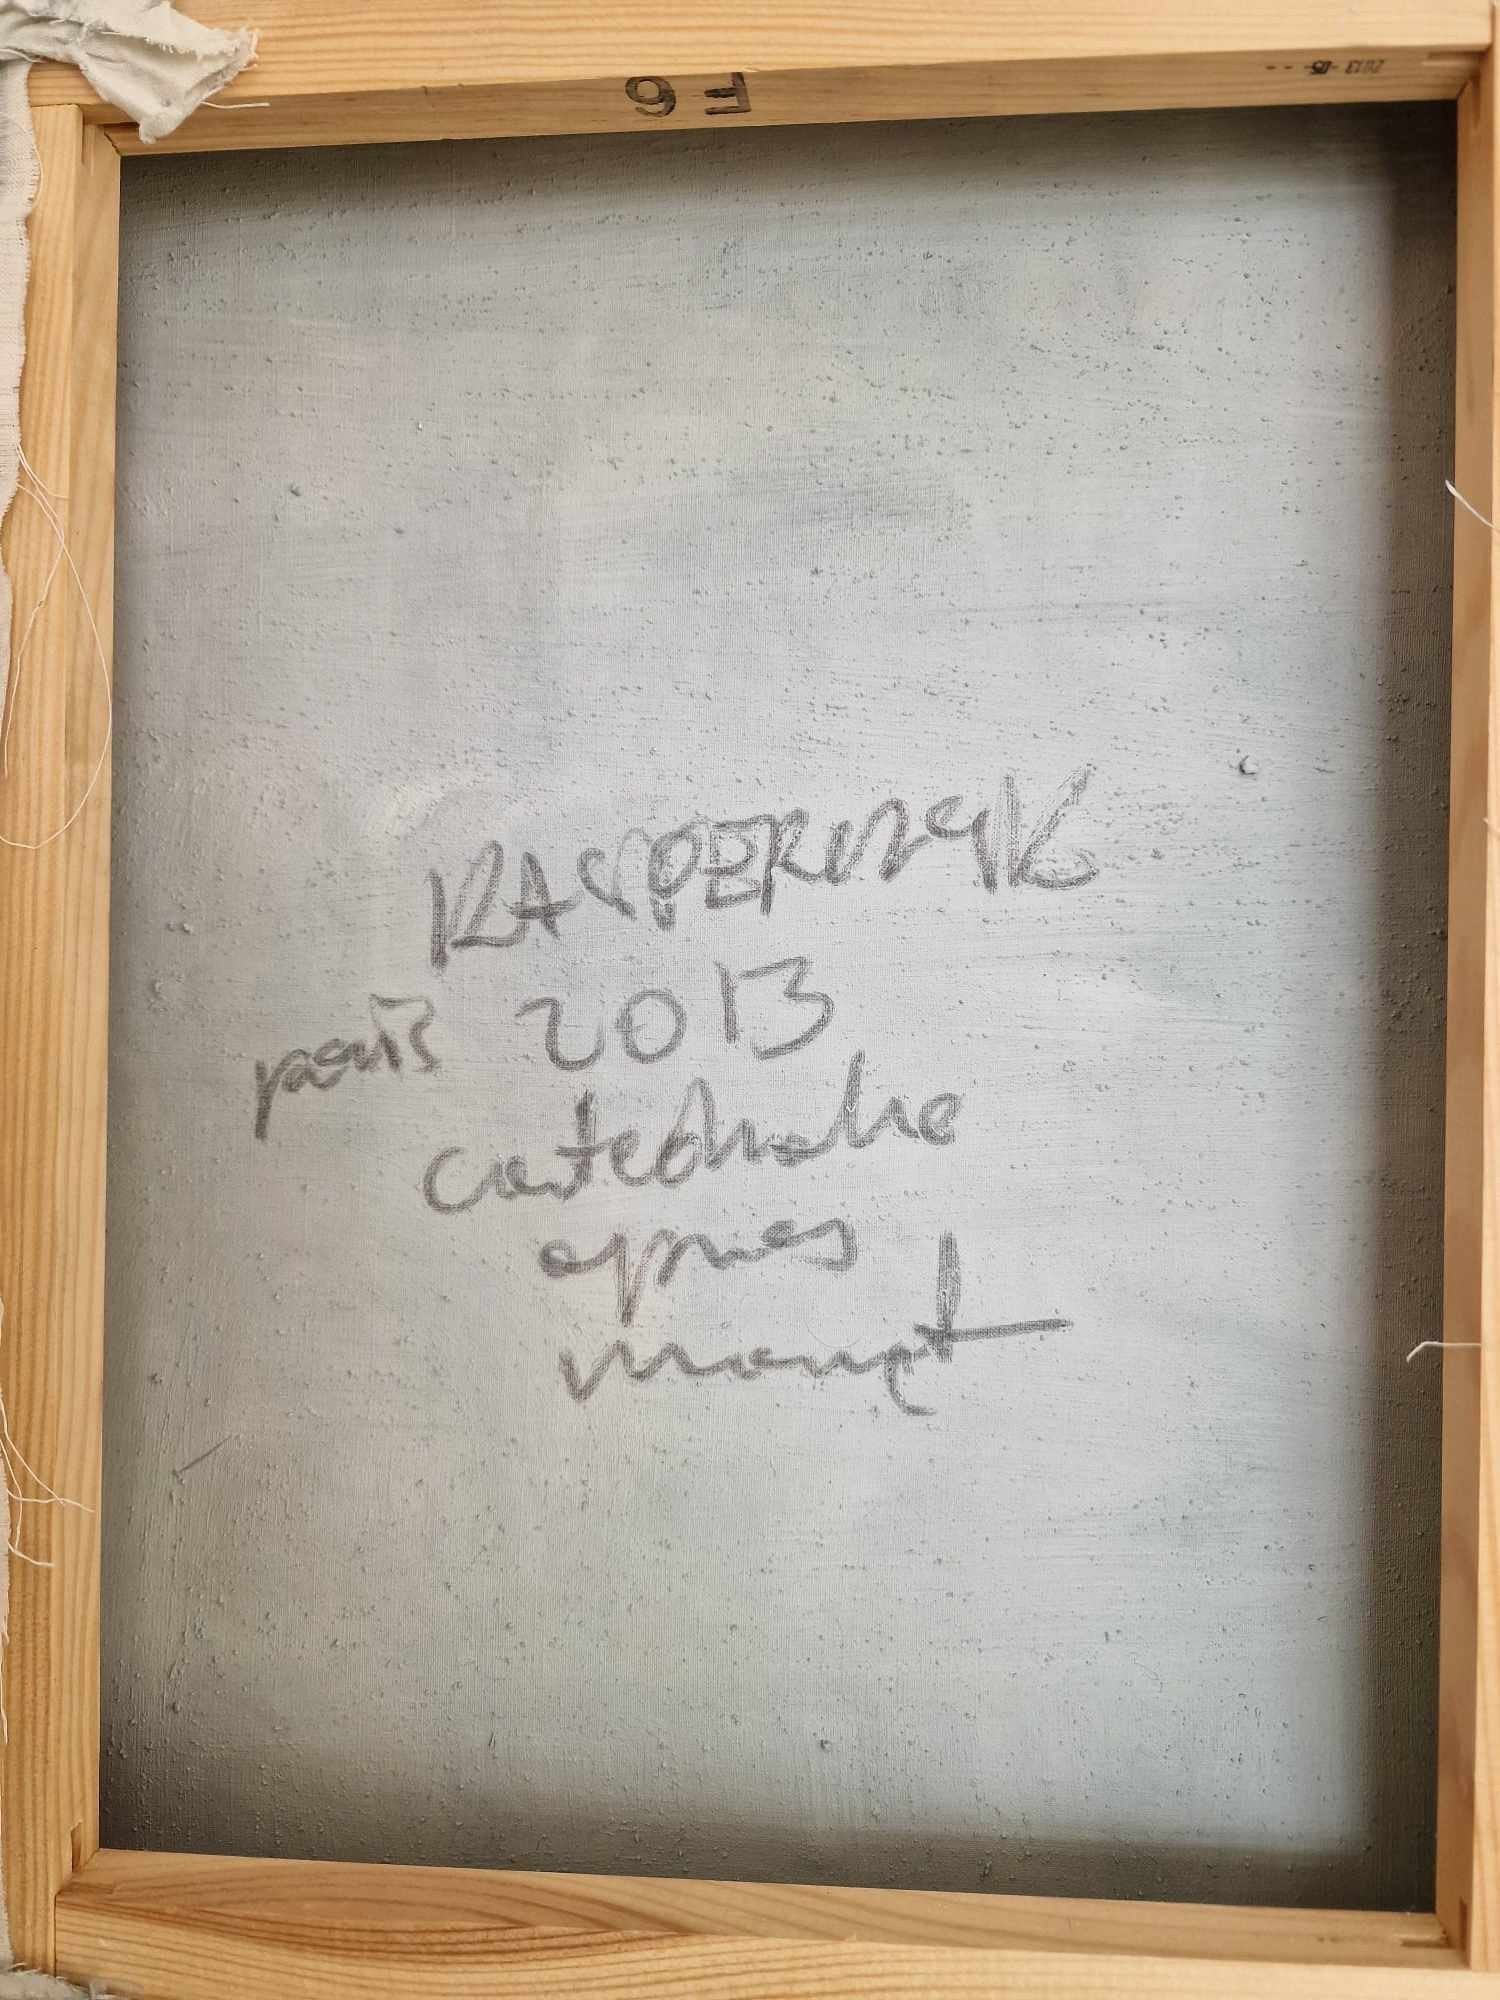 F6
2013-05-
KASPERCZYK
paris 2013
catedrale
apres
monet